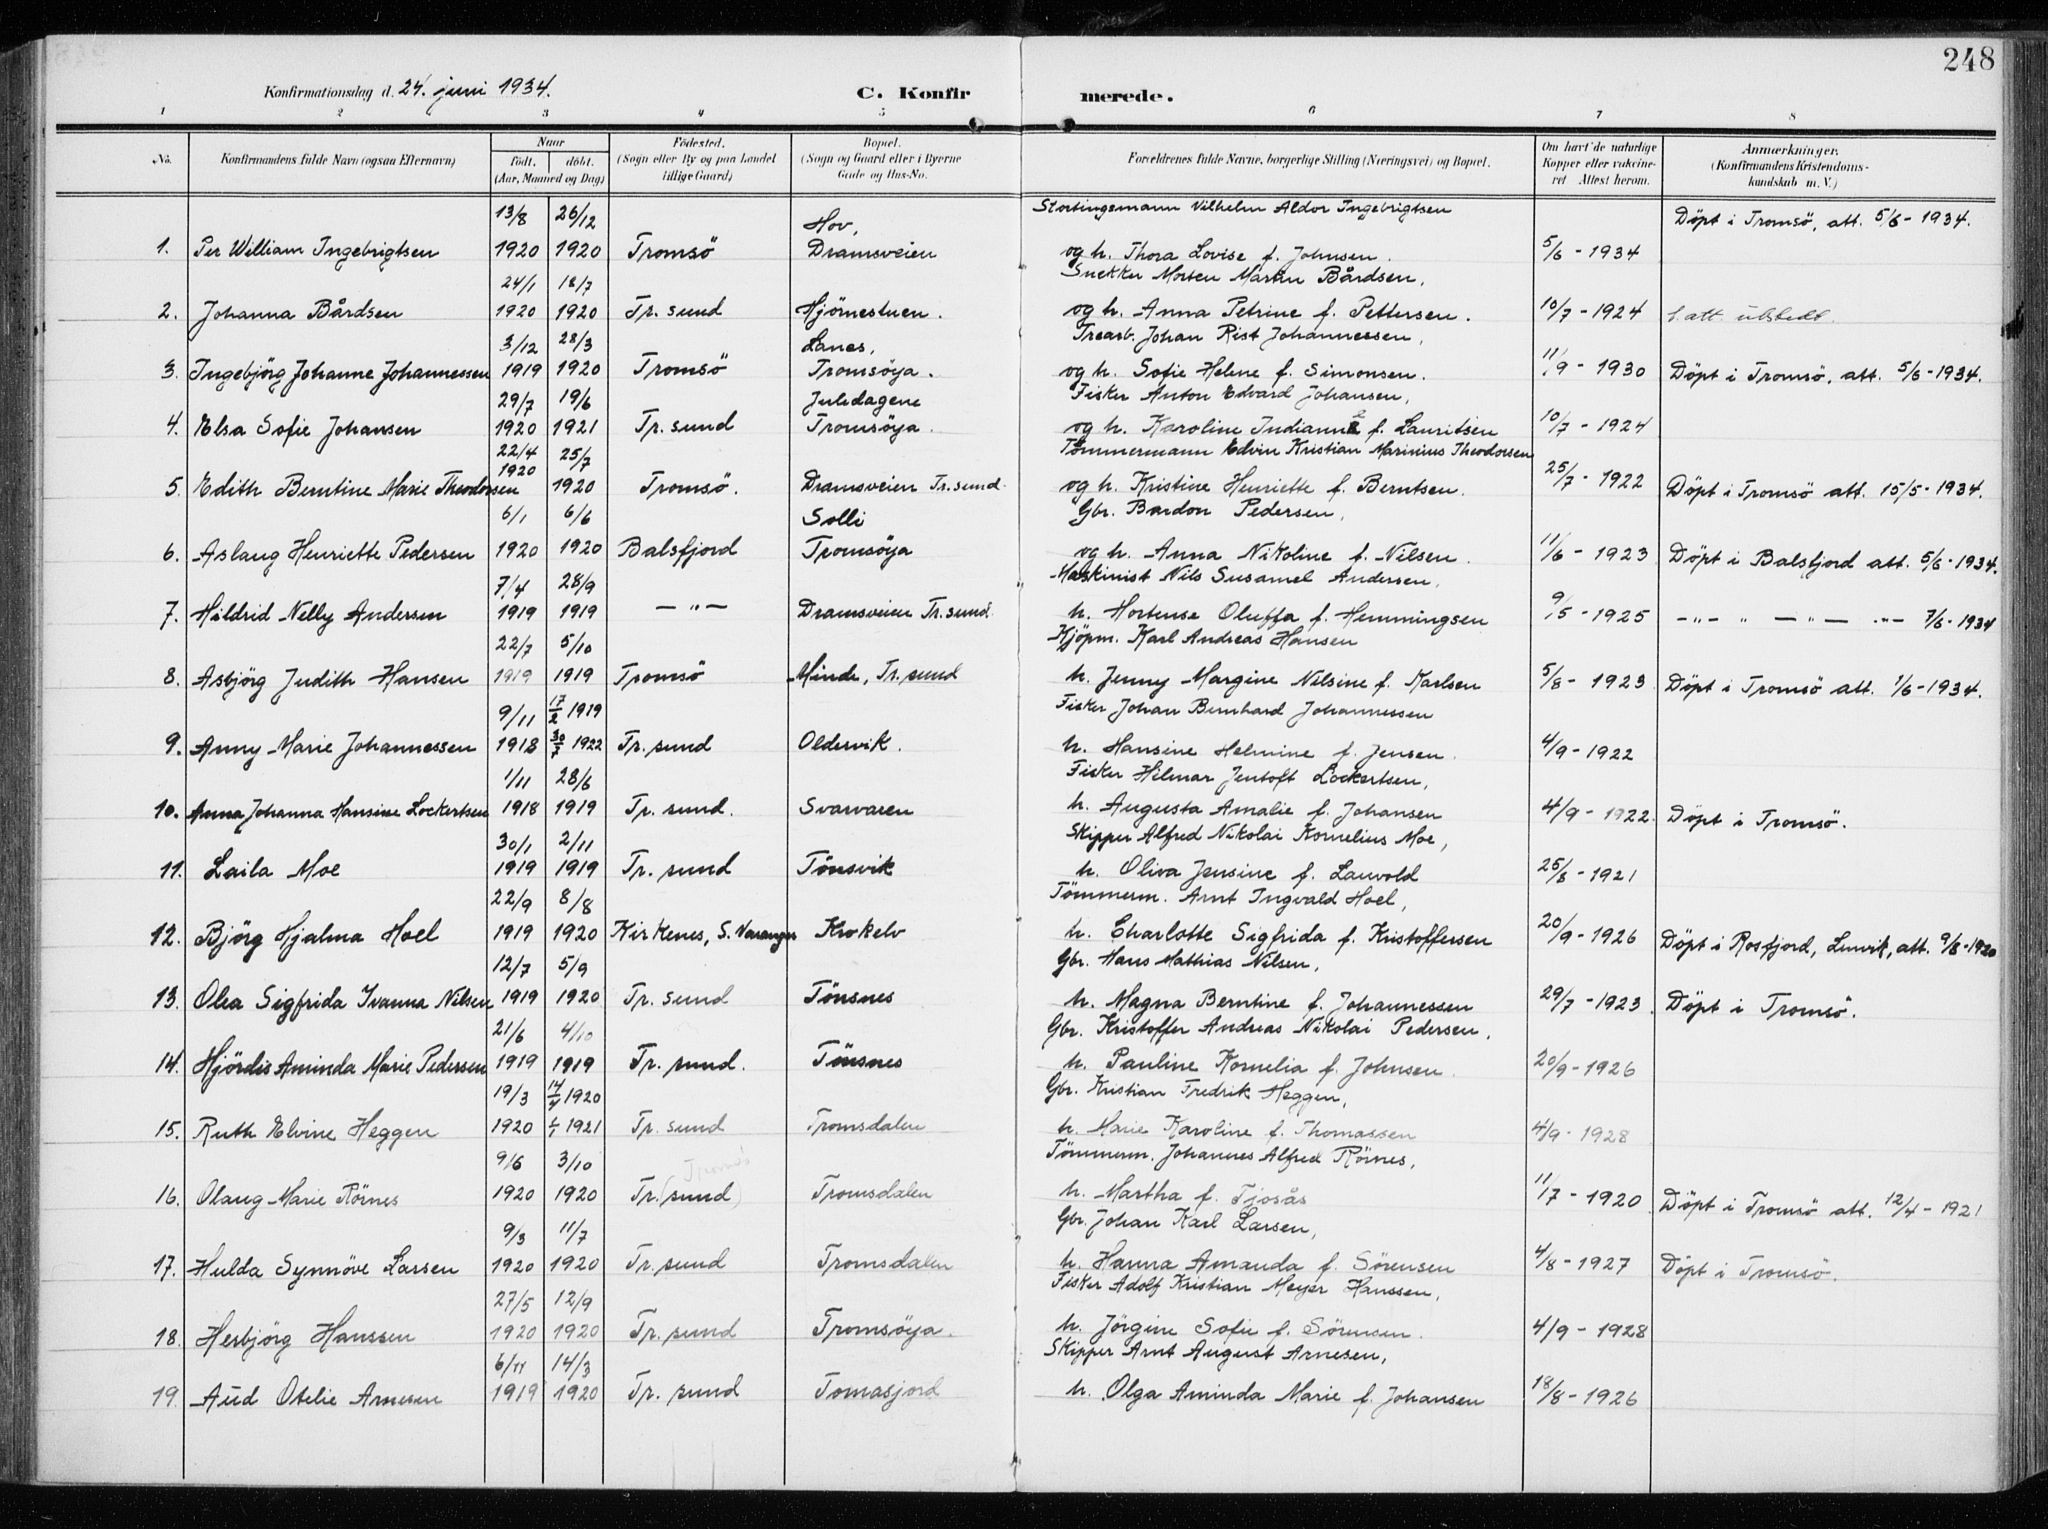 248
Konfirmationsdag d. 24. juni 1934. C. Konfir merede.
1 2 3 4 5 6 7 8
No. Konfirmandens fulde Navn (ogsaa Efternavn) Naar født. døbt. (Aar, Maaned og Dag) Fødested. (Sogn eller By og paa Landet tillige Gaard) Bopæl. (Sogn og Gaard eller i Byerne Gade og Hus-No. Forældrenes fulde Navne, borgerlige Stilling (Næringsvei) og Bopæl. Om havt de naturlige Kopper eller vakcineret Attest herom. Anmærkninger. (Konfirmandens Kristendomskundskab m. V.)
13/8 26/12 Hov, Stortingsmann Vilhelm Aldor Ingebrigtsen Döpt i Tromsö, att. 5/6-1934.
1. Per William Ingebrigtsen 1920 1920 Tromsö Dramsveien og h. Thora Lovise f. Johnsen. 5/6 - 1934
24/1 18/7 Snekker Morten Martin Bårdsen,
2. Johanna Bårdsen 1920 1920 Tr. sund Hjörnestuen. og h. Anna Petrine f. Pettersen. 10/7 - 1924 f. att. utstedt.
3/12 28/3 Lanes, Trearb. Johan Rist Johannessen,
3. Ingebjörg Johanne Johannessen 1919 1920 Tromsö Tromsöya. og h. Sofie Helene f. Simonsen. 11/9 - 1930 Döpt i Tromsö, att. 5/6-1934.
29/7 19/6 Juledagene Fisker Anton Edvard Johansen,
4. Elsa Sofie Johansen 1920 1921 Tr. sund Tromsöya. og h. Karoline f. Lauritsen 10/7 - 1924
22/4 25/7 Tömmermann Edvin Kristian Marinius Theodorsen
1920
5. Edith Berntine Marie Theodorsen 1920 Tromsö. Dramsveien Tr. sund. og h. Kristine Henriette f. Berntsen. 25/7 - 1922 Döpt i Tromsö att. 15/5-1934.
6/1 6/6 Solli Gbr. Bardon Pedersen,
6. Aslaug Henriette Pedersen 1920 1920 Balsfjord Tromsöya og h. Anna Nikoline f. Nilsen. 11/6 - 1923 Döpt i Balsfjord att. 5/6-1934.
7/4 28/9 Maskinist Nils Susamel Andersen,
7. Hildrid Nelly Andersen 1919 1919 — " — Dramsveien Tr. sund. h. Hortense Oluffa f. Hemmingsen 9/5 - 1925 - " - " - " - " - 7/6-1934
22/7 5/10 Kjöpm. Karl Andreas Hansen
8. Asbjörg Judith Hansen 1919 1919 Tromsö Minde, Tr. sund h. Jenny Margine Nilsine f. Karlsen 5/8 - 1923 Döpt i Tromsö att. 1/6-1934.
9/11 17/2 1919 Fisker Johan Bernhard Johannessen
9. Anny Marie Johannessen 1918 30/7 1922 Tr. sund Oldervik. h. Hansine Helmine f. Jensen. 4/9 - 1922
1/11 28/6 Fisker Hilmar Jentoft Lockertsen,
10. Anna Johanna Hansine Lockertsen 1918 1919 Tr. sund. Svarvaren h. Augusta Amalie f. Johansen 4/9 - 1922. Döpt i Tromsö.
30/1 2/11 Skipper Alfred Nikolai Kornelius Moe,
11. Laila Moe 1919 1919 Tr. sund Tönsvik h. Oliva Jensine f. Lauvold 25/8 - 1921
22/9 8/8 Tömmerm. Arnt Ingvald Hoel,
12. Björg Hjalma Hoel 1919 1920 Kirkenes, S. Varanger Krokelv h. Charlotte Sigfrida f. Kristoffersen 20/9 - 1926 Döpt i Rosfjord, Lenvik, att. 9/8-1920
12/7 5/9 Gbr. Hans Mathias Nilsen,
13. Olea Sigfrida Ivanna Nilsen 1919 1920 Tr. sund Tönsnes h. Magna Berntine f. Johannessen 29/7 - 1923 Döpt i Tromsö.
21/6 4/10 Gbr. Kristoffer Andreas Nikolai Pedersen,
14. Hjördis Aminda Marie Pedersen 1919 1919 Tr. sund. Tönsnes h. Pauline Kornelia f. Johnsen. 20/9 - 1926
19/3 14/4 1920 Gbr. Kristian Fredrik Heggen,
15. Ruth Elvine Heggen 1920 1/1 1921 Tr. sund Tromsdalen h. Marie Karoline f. Thomassen 4/9 - 1928
9/6 3/10 Tromsö Tömmerm. Johannes Alfred Rörnes,
16. Olaug Marie Rörnes 1920 1920 Tr. (sund) Tromsdalen h. Martha f. Tjosås 11/7 - 1920 Döpt i Tromsö att. 12/4 - 1921
9/3 11/7 Gbr. Johan Karl Larsen,
17. Hulda Synnöve Larsen 1920 1920 Tr. sund Tromsdalen h. Hanna Amanda f. Sörensen 4/8 - 1927 Döpt i Tromsö.
27/5 12/9 Fisker Adolf Kristian Meyer Hanssen,
18. Herbjörg Hanssen 1920 1920 Tr. sund Tromsöya. h. Jörgine Sofie f. Sörensen. 4/9 - 1928
6/11 14/3 Skipper Arnt August Arnesen,
19. Aud Otelie Arnesen 1919 1920 Tr. sund Tomasjord h. Olga Aminda Marie f. Johansen 18/8 - 1926